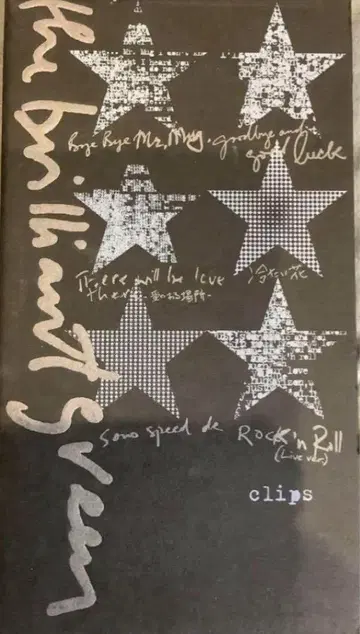 the brilliant green
Bye Bye Mr. Mug.
goodbye and
good luck
There will be love
there -愛のある場所-
冷たい花
Sono speed de
ROCK'n Roll
(Live ver)
clips